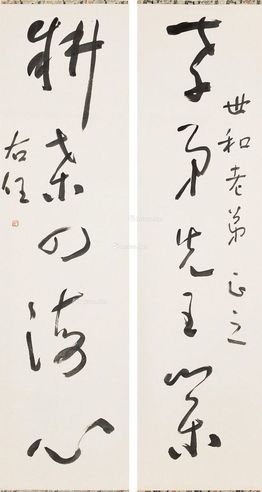 世和老弟正之
孝弟先王業
耕桑四海心
右任